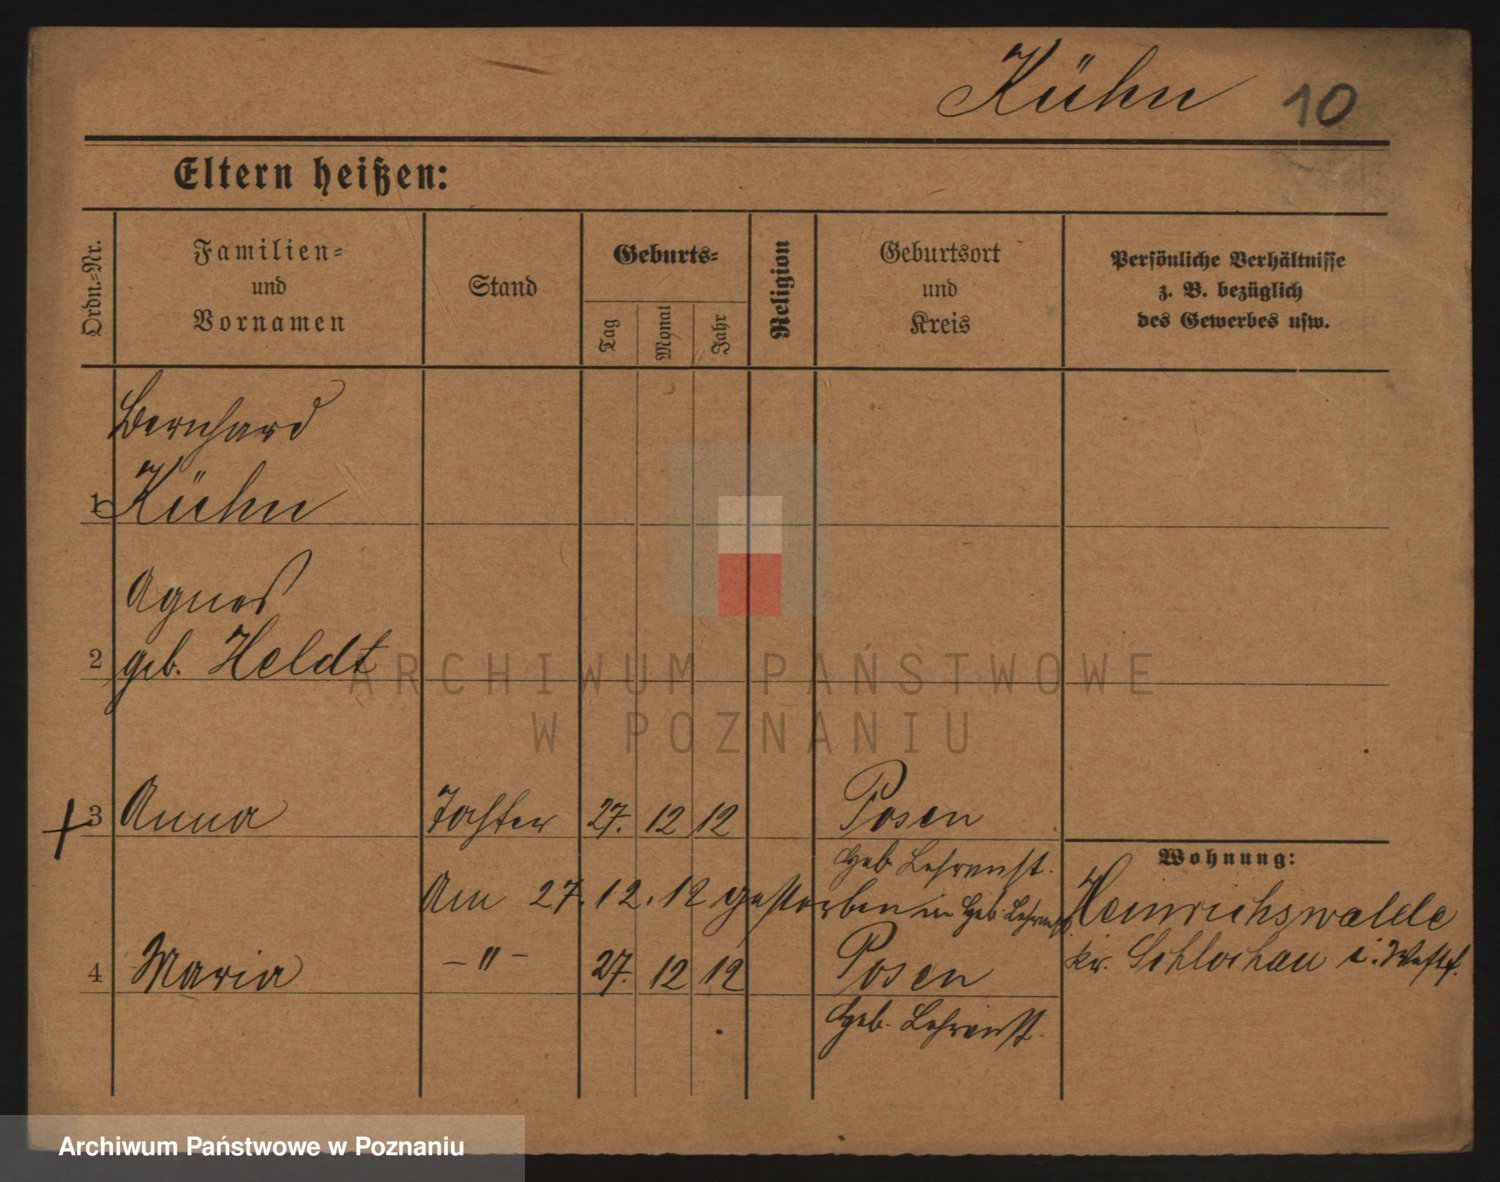 Kühn 10
Eltern heißen:
Ordn.-Nr.
Familien-
und
Vornamen
Stand
Geburts-
Tag
Monat
Jahr
Religion
Geburtsort
und
Kreis
Persönliche Verhältnisse
z. B. bezüglich
des Gewerbes usw.
Bernhard
1 Kühn
Agnes
2 geb. Heldt
ARCHIWUM PAŃSTWOWE
W POZNANIU
3 Anna Tochter 27. 12 12 Posen
Heb. Lehranst.
Wohnung:
Am 27.12.12 gestorben in Heb. Lehranst.
Heinrichswalde
Kr. Schlochau i. Westpr.
4 Maria – " – 27. 12 12 Posen
Heb. Lehranst.
Archiwum Państwowe w Poznaniu